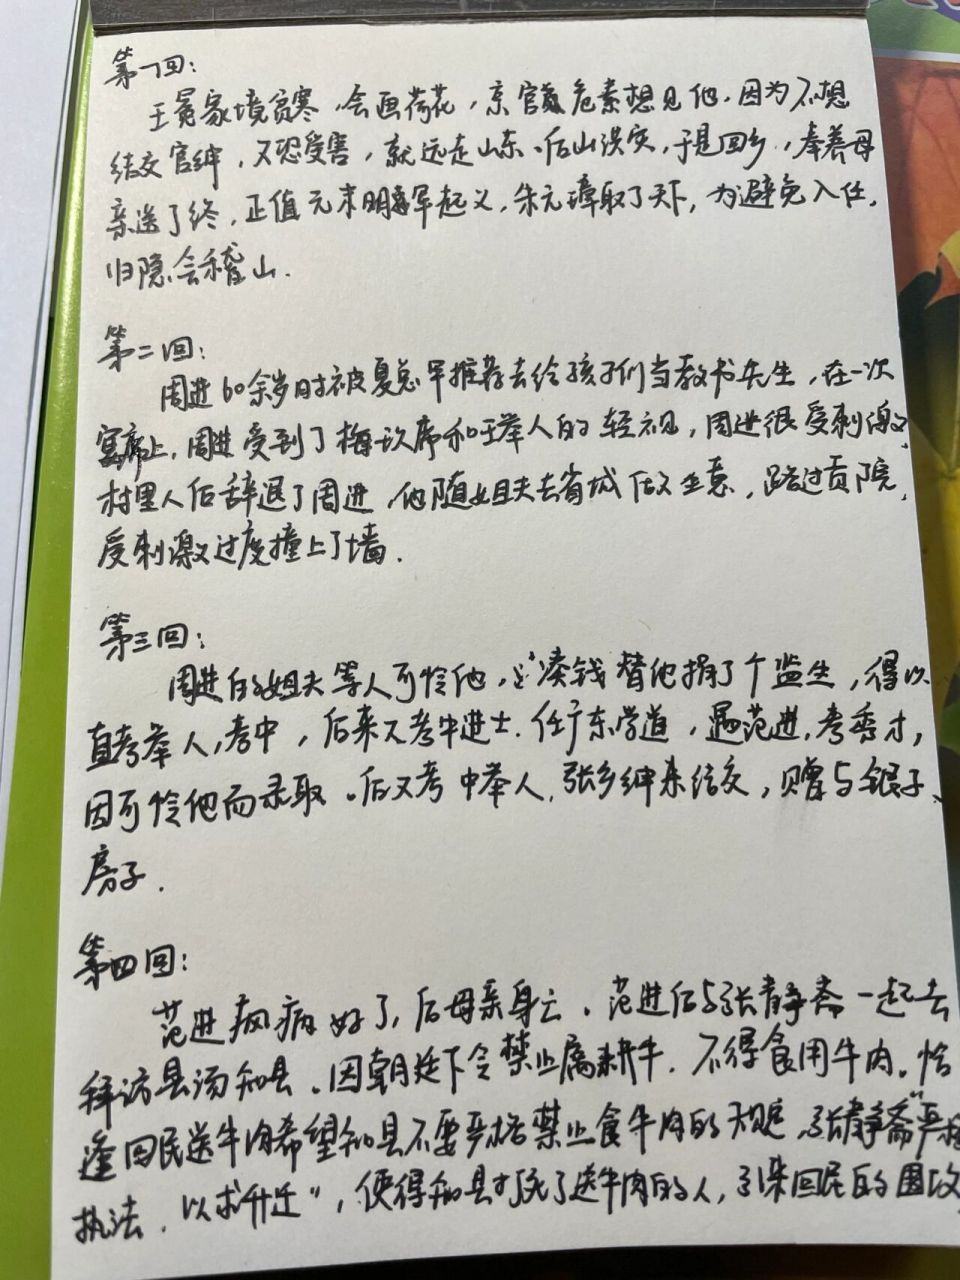 第一回：
王冕家境贫寒，会画荷花，京官危素想见他，因为不想
结交官绅，又恐受害，就远走山东。后山洪灾，于是回乡，奉养母
亲送了终，正值元末明军起义，朱元璋取了天下，为避免入仕，
归隐会稽山.
第二回：
周进60余岁时被夏总甲推荐去给孩子们当教书先生，在一次
宴席上，周进受到了梅玖席和王举人的轻视，周进很受刺激，
村里人后辞退了周进，他随姐夫去省城做生意，路过贡院，
受刺激过度撞上了墙.
第三回：
周进的姐夫等人可怜他，凑钱替他捐了个监生，得以
直考举人，考中，后来又考中进士.任广东学道，遇范进，考秀才，
因可怜他而录取。后又考中举人，张乡绅来结交，赠与银子、
房子.
第四回：
范进疯病好了，后母亲身亡.范进后与张静斋一起去
拜访县汤知县.因朝廷下令禁止屠耕牛.不得食用牛肉.恰
逢回民送牛肉希望知县不要严格禁止食牛肉的规定，张静斋"严格
执法，以求升迁"，使得知县打死了送牛肉的人，回民的围攻